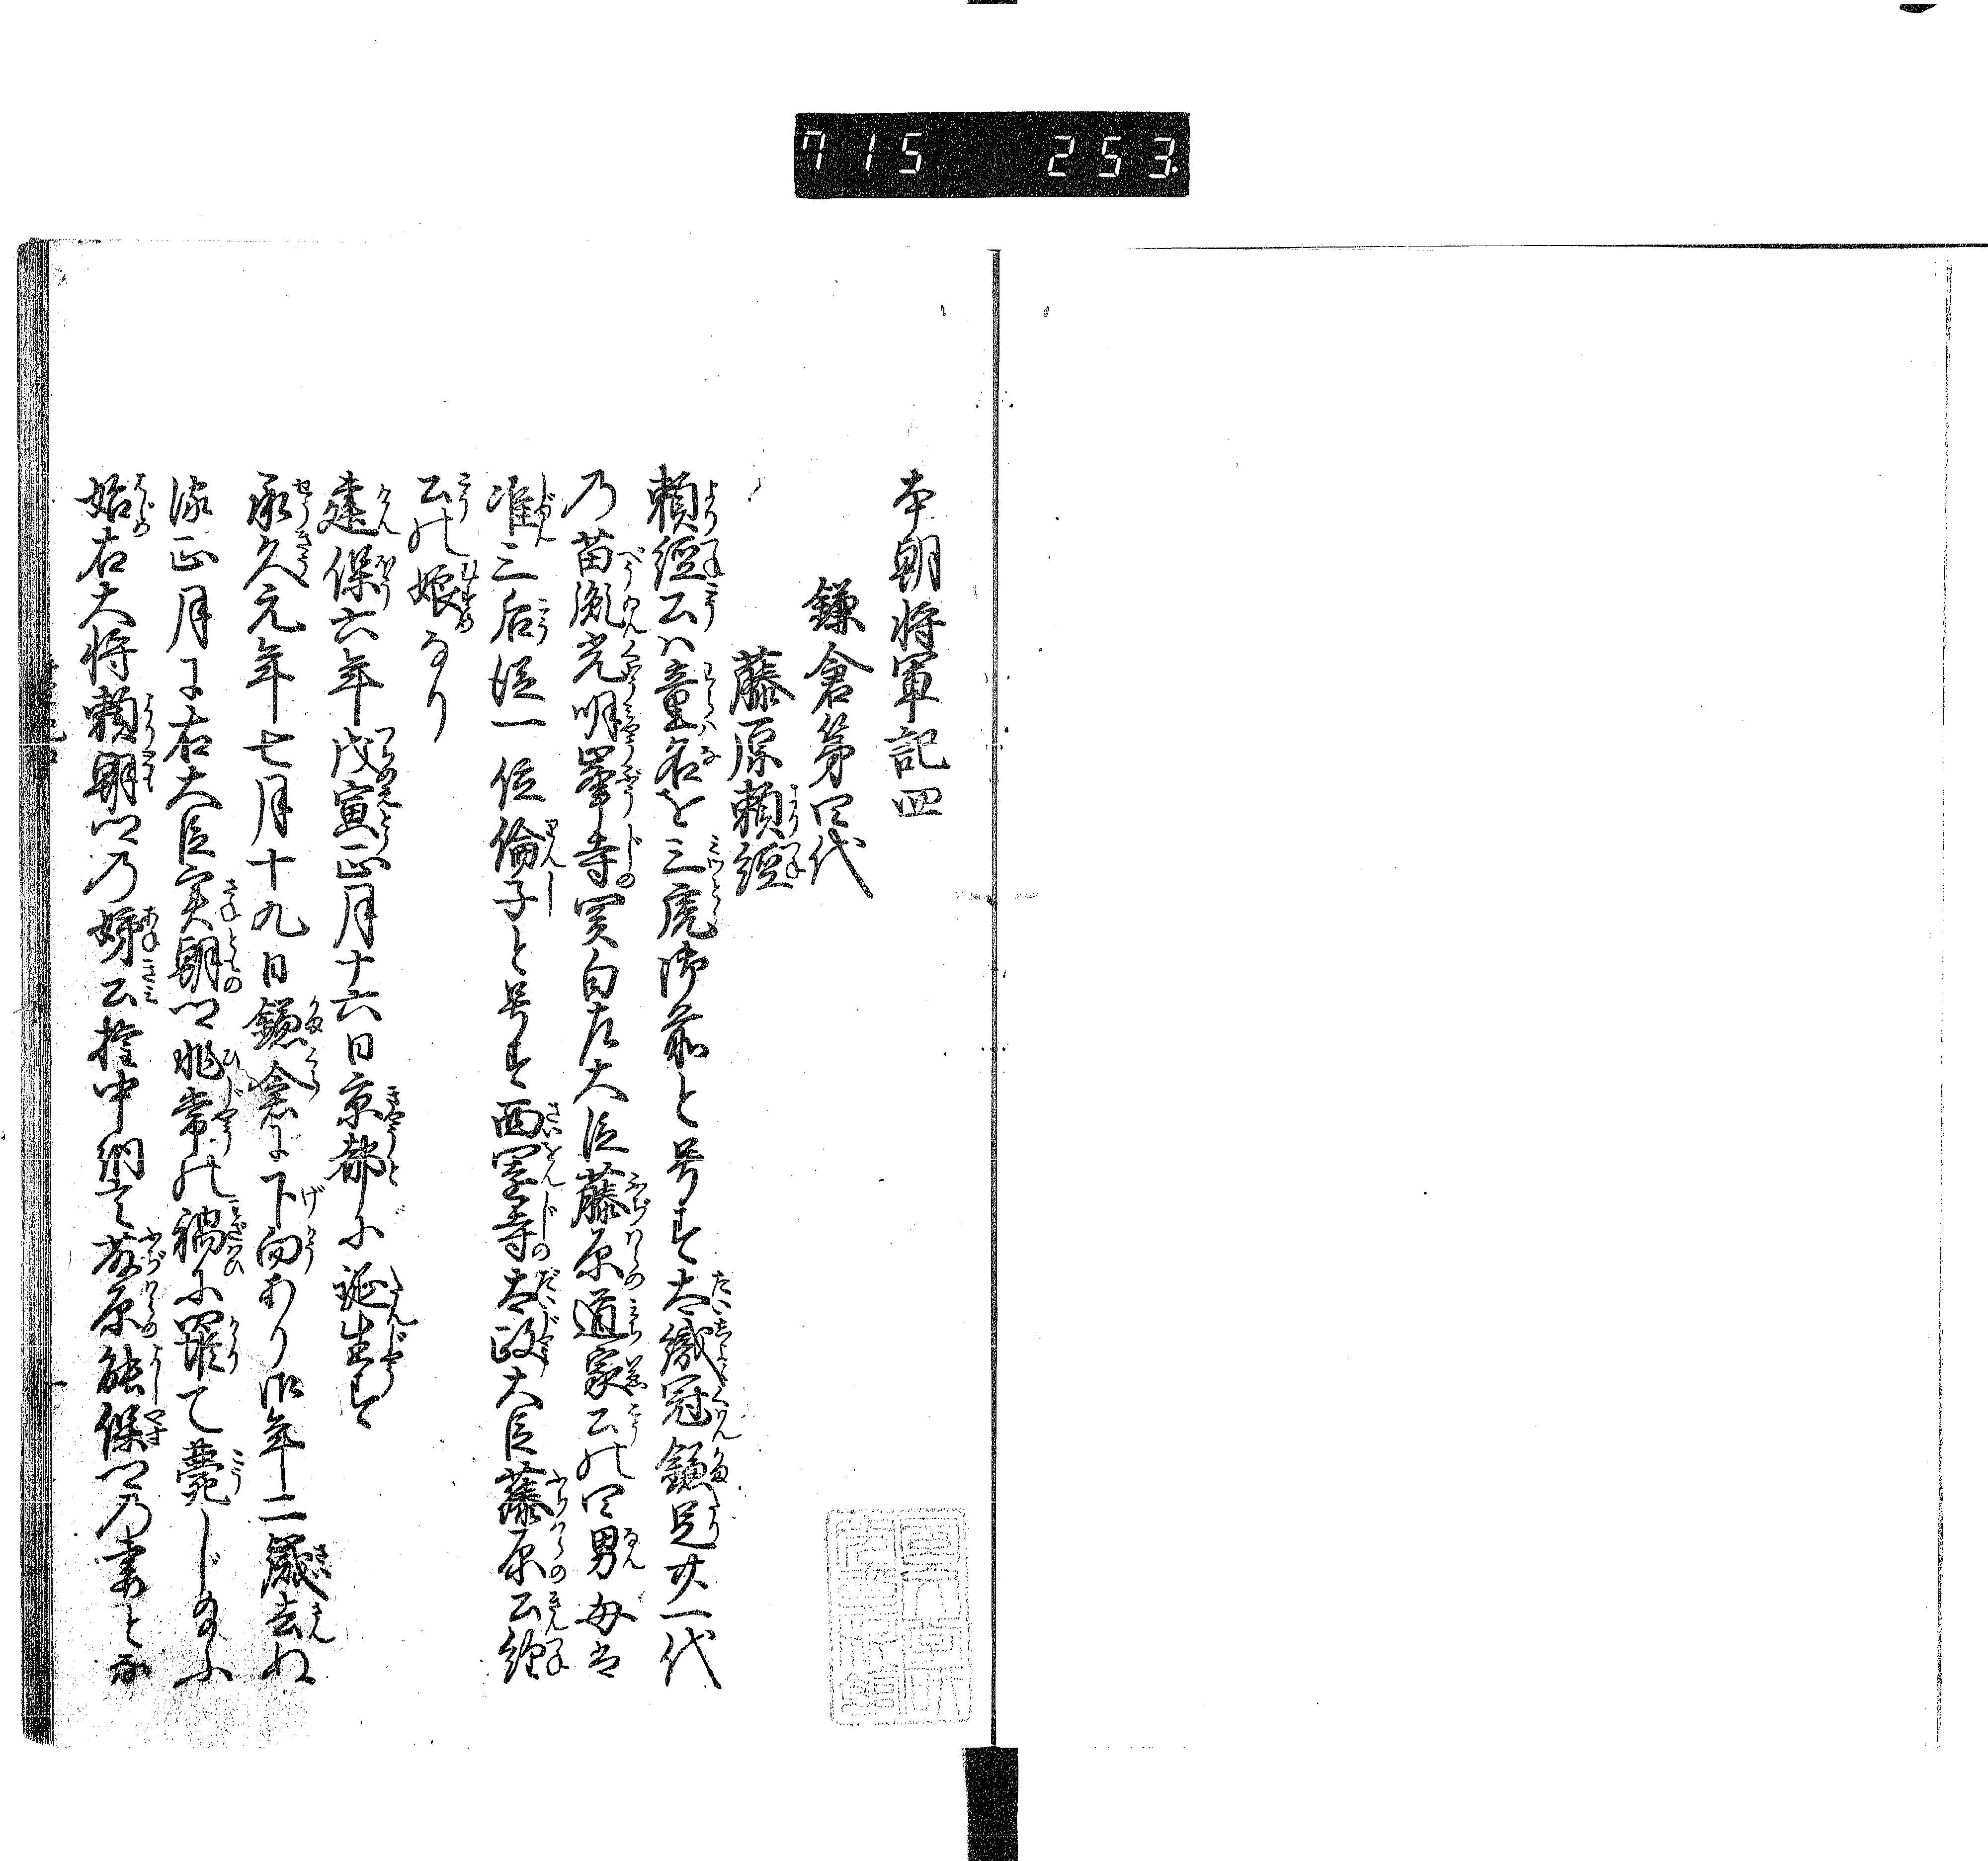 715 253
本朝将軍記四
鎌倉第四代
藤原頼経
頼経公ハ童名を三虎御前と号す大織冠鎌足廿一代
乃苗胤光明峯寺関白左大臣藤原道家公の四男母は
准三后従一位倫子と号す西園寺太政大臣藤原公経
公の娘なり
建保六年戊寅正月十六日京都に誕生す
承久元年七月十九日鎌倉に下向あり御年二歳去ぬ
る正月に右大臣実朝卿非常の禍に罹て薨じ給ふ
始右大将頼朝卿乃姉公権中納言藤原能保卿乃妻とな